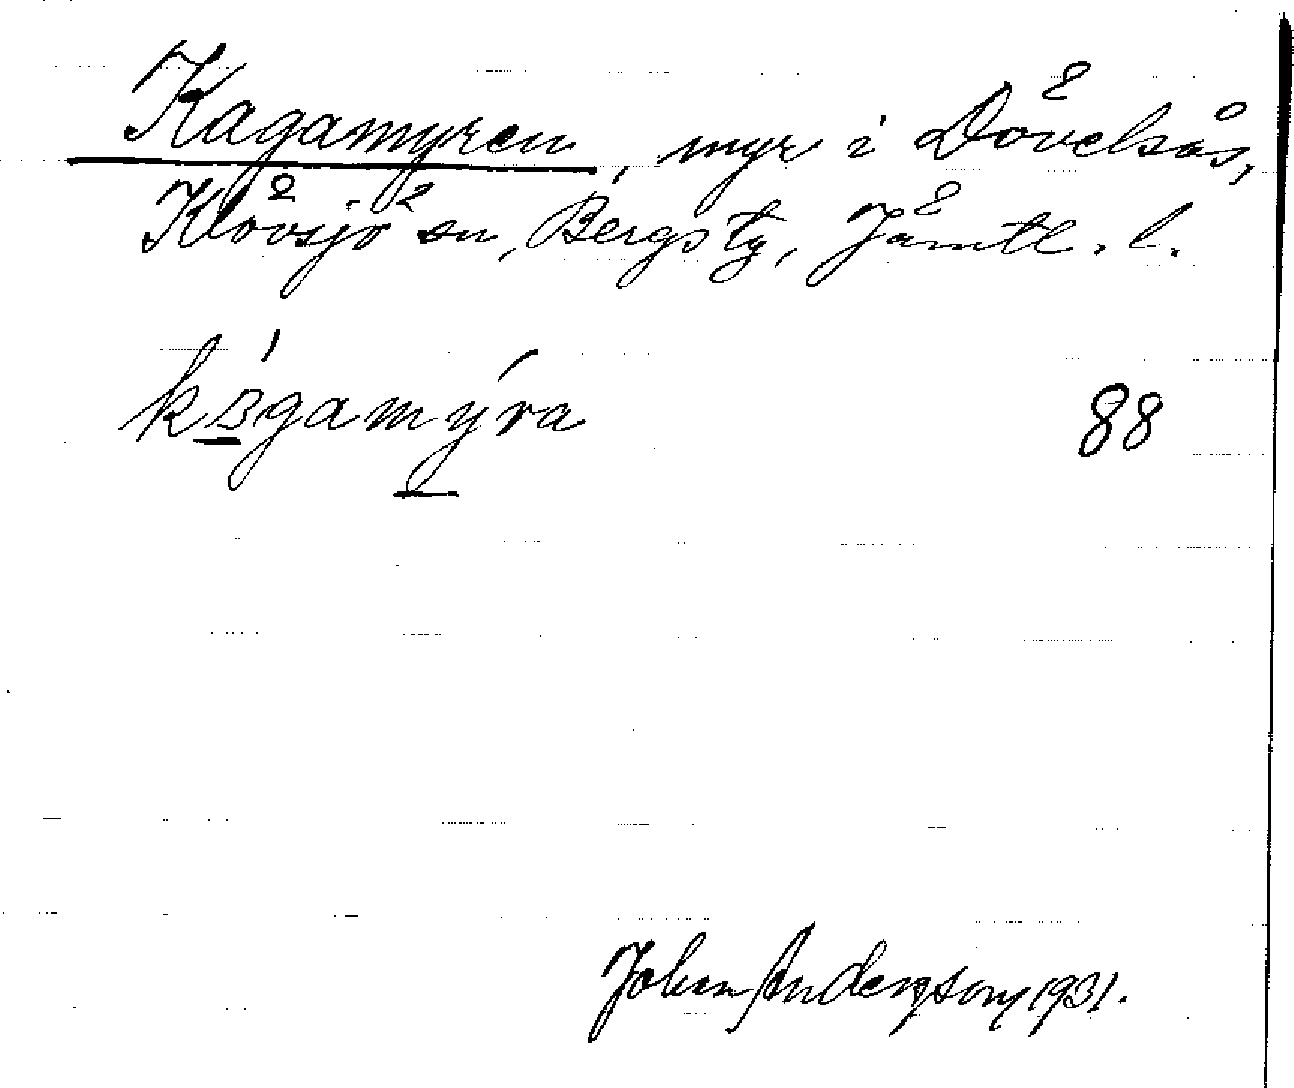 Kagamyren, myr i Dövelsås,
Klövsjö sn, Bergs tg, Jämtl. l.
kß́gamýra
88
Johan Anderson, 1931.